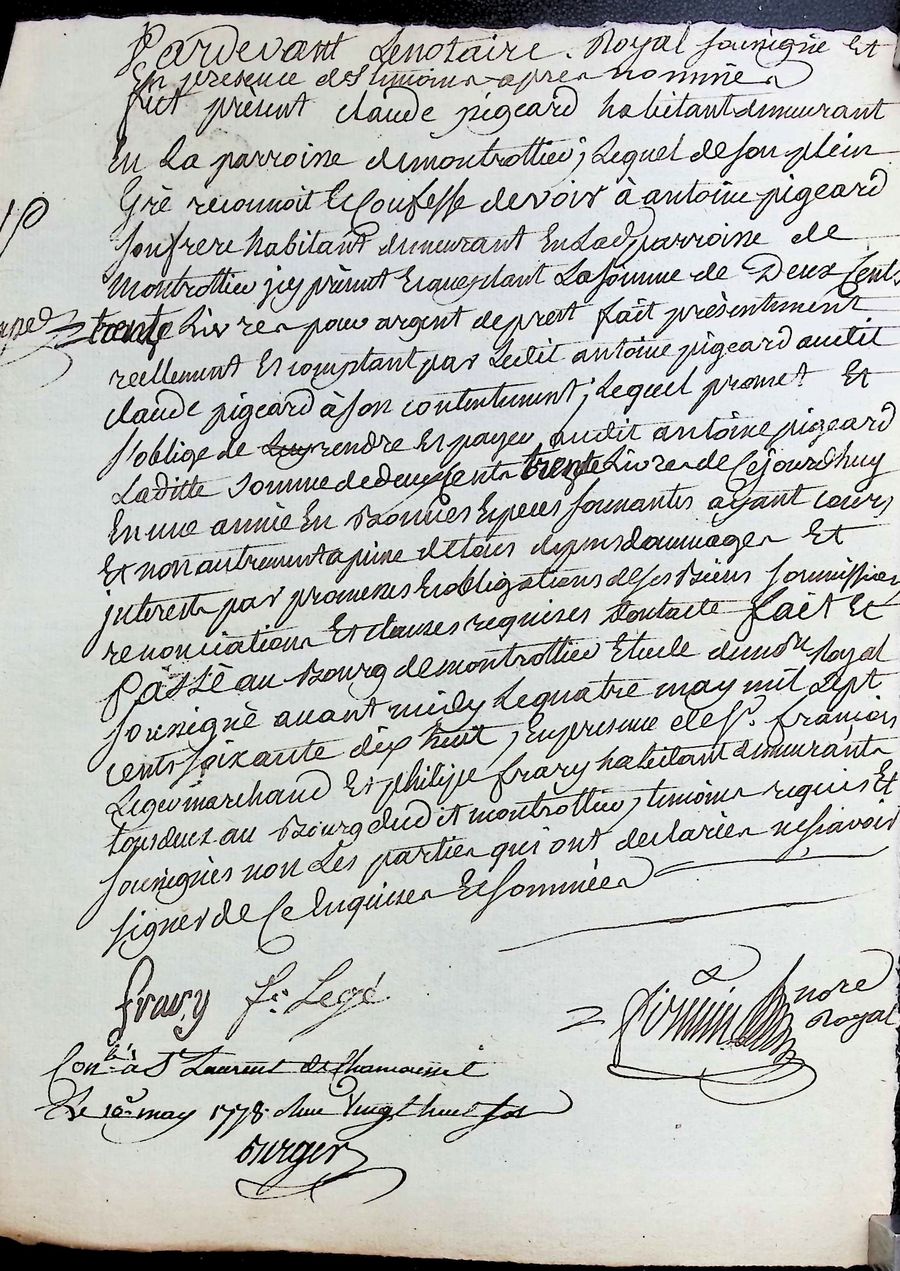 Pardevant Le notaire Royal sousigné Et
En presence des temoins apres nommés
fut present claude pigeard habitant demeurant
En La parroisse de montrottier, Lequel de son plein
Gré reconnoit Et Confesse devoir à antoine pigeard
son frere habitant demeurant En Lad. parroisse de
Montrottier icy présent Et acceptant La somme de Deux Cents
trente Livres pour argent de prest fait présentement
reellement Et comptant par Ledit antoine pigeard audit
claude pigeard à son contentement; Lequel promet Et
s'oblige de Luy rendre Et payer audit antoine pigeard
Laditte somme de deux Cents trente Livres de Cejourdhuy
En une année En Bonnes Especes sonnantes ayant cours
Et non autrement a peine de tous depens dommages Et
interests par promesses Et obligations de ses Biens soumissions
renonciations Et clauses requises Dont acte fait Et
Passé au Bourg de montrottier Etude dud. no.re Royal
sousigné avant midy Le quatre may mil sept
cents soixante dix huit, En presence de Sr. francois
Leger marchand Et philipe frary habitant demeurants
tous deux au Bourg dudit montrottier, temoins requis Et
sousignés non Les parties qui ont declarées ne sçavoir
signer de Ce Enquises Et sommées
frary fs. Legé
firmin nore
Royal
Con.lé à St Laurent de Chamousset
Le 18 may 1778 Vingt huit sols
Burger